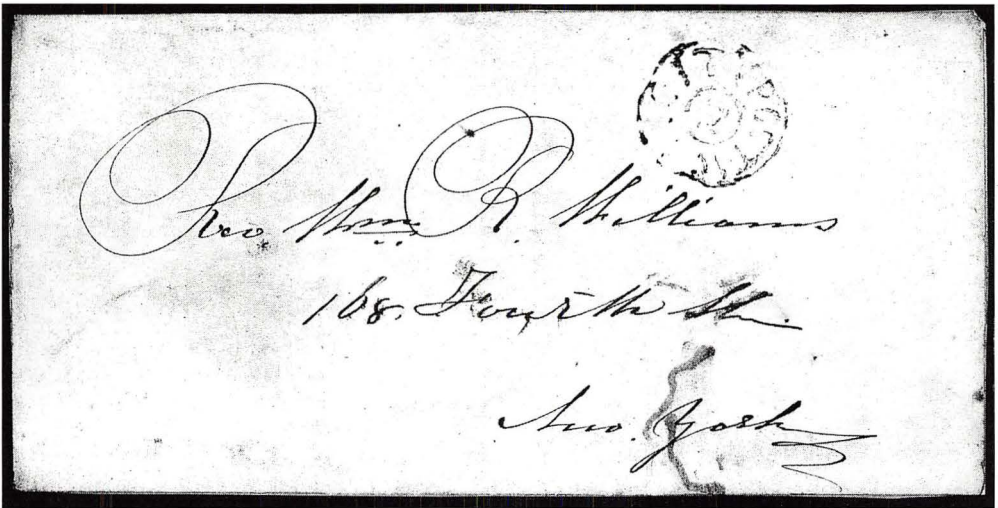 Rev Wm R. Williams
168. Fourth St.
New. York